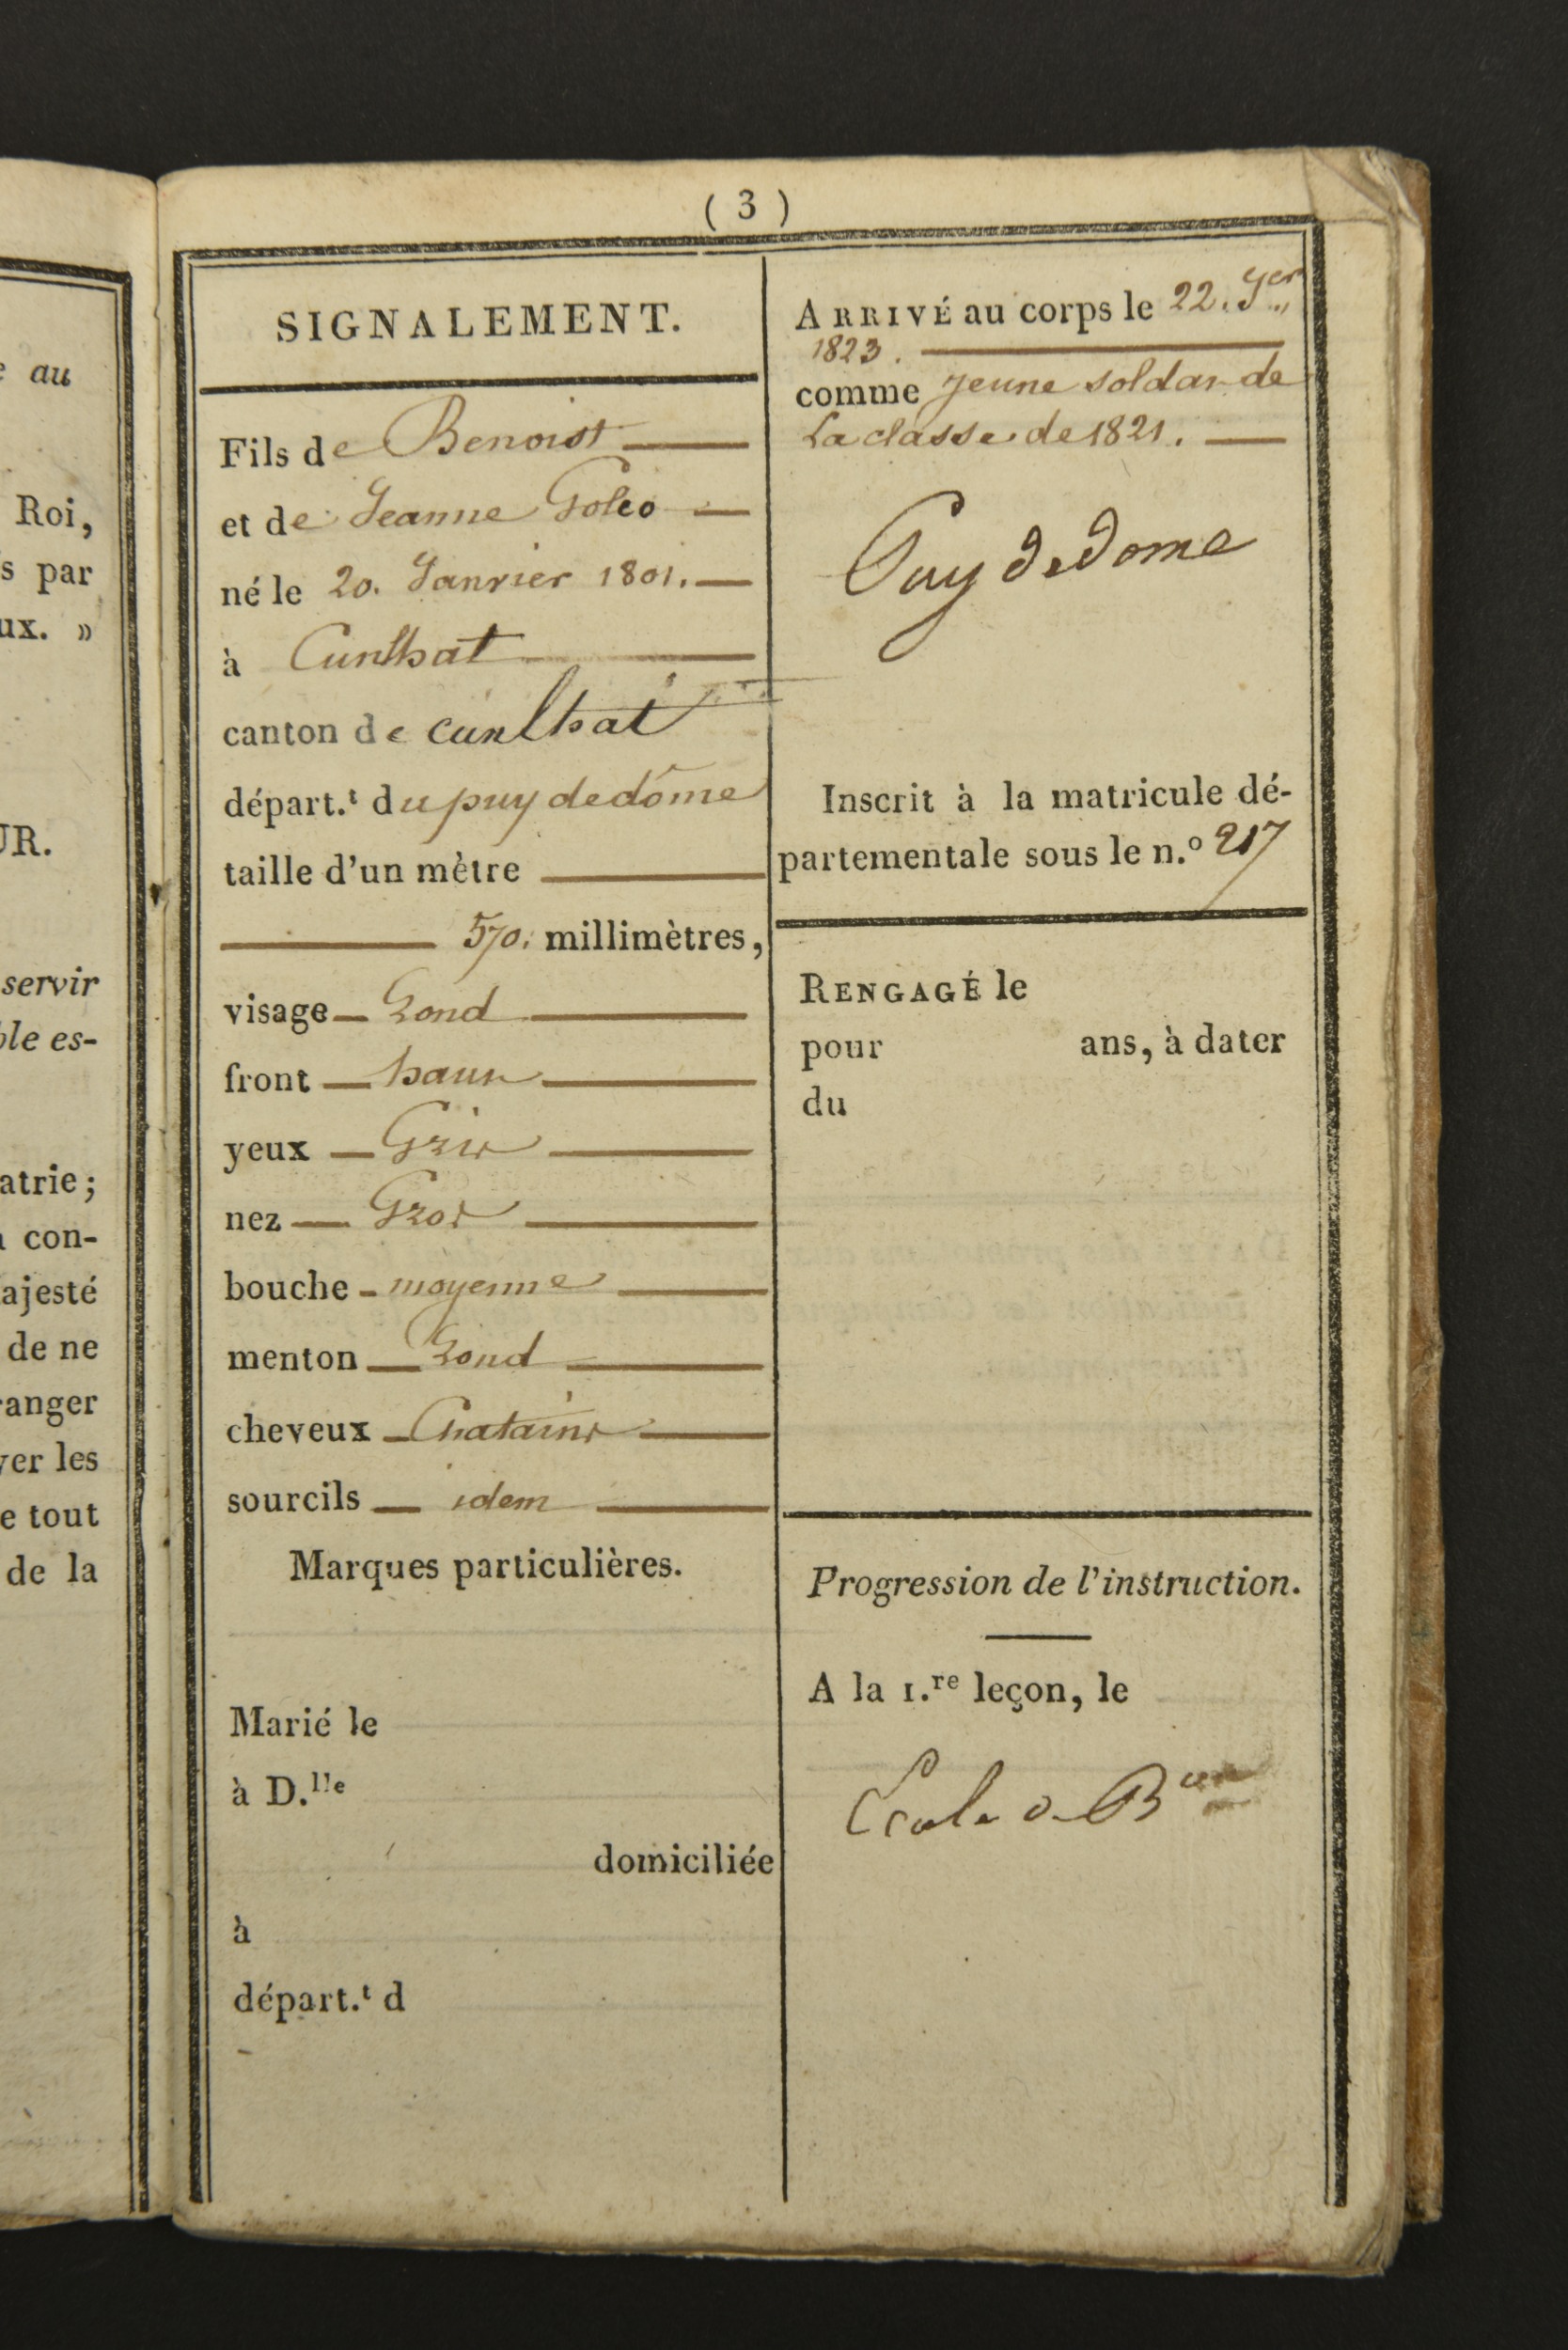 e au
Roi,
s par
ux. »
UR.
servir
ble es-
atrie;
a con-
ajesté
de ne
ranger
yer les
e tout
de la
( 3 )
SIGNALEMENT.
Fils de Benoist
et de Jeanne
né le 20. Janvier 1801.
à Cunlhat
canton de cunlhat
départ.t du puy de dôme
taille d'un mètre
570. millimètres,
visage Rond
front haut
yeux Gris
nez Gros
bouche moyenne
menton Rond
cheveux Chatains
sourcils idem
Marques particulières.
Marié le
à D.lle
domiciliée
à
départ.t d
ARRIVÉ au corps le 22. Jer
1823.
comme jeune soldat de
La classe de 1821.
Puy de Dome
Inscrit à la matricule dé-
partementale sous le n.o 217
RENGAGÉ le
pour ans, à dater
du
Progression de l'instruction.
A la 1.re leçon, le
Ecole de Bon